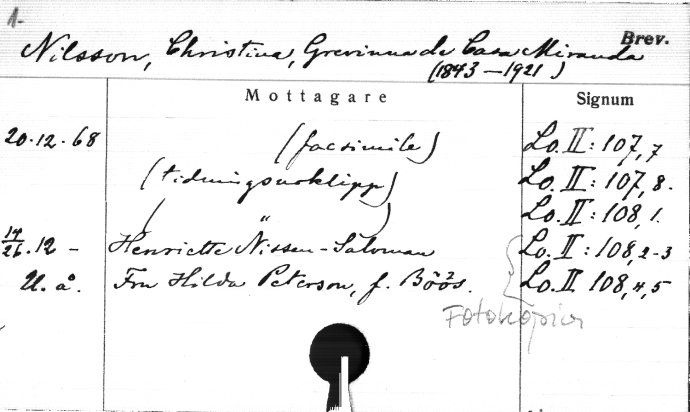 1.
Brev.
Nilsson, Christina, Grevinna de Casa Miranda
(1843–1921)
Mottagare Signum
20.12.68 (facsimile) Lo. II: 107,7
(tidningsurklipp) Lo. II: 107,8.
( " ) Lo. II: 108,1.
14/26.12 – Henriette Nissen-Saloman Lo. II: 108,2-3
U. å. Fru Hilda Peterson, f. Böös. Lo. II 108,4,5
Fotokopior